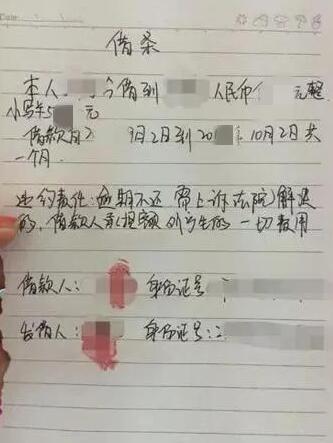 借条
本人 今借到 人民币 元整
小写 5 元
借款日 9月2日到20 10月2日共
一个月.
违约责任:逾期不还 需上诉法院解决
的,借款人承担 产生的一切费用
借款人: 身份证号
出借人: 身份证号: